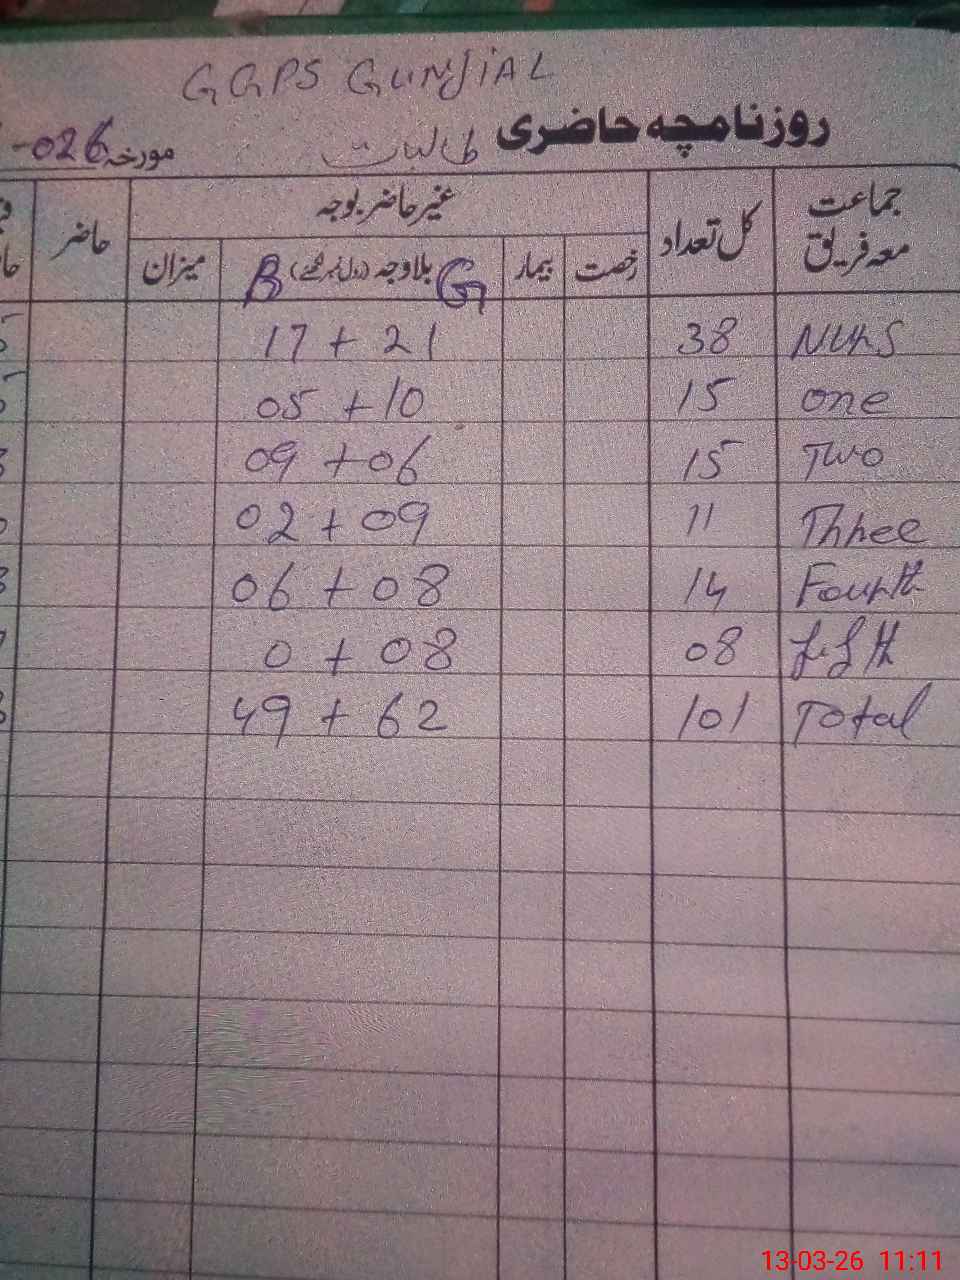 GGPS GUNJIAL
روزنامچہ حاضری طالبات مورخہ 026-
جماعت معہ فریق کل تعداد غیر حاضر بوجہ حاضر
رخصت بیمار G بلاوجہ (رول نمبر لکھیے) B میزان
Nurs 38 17 + 21
one 15 05 + 10
Two 15 09 + 06
Three 11 02 + 09
Fourth 14 06 + 08
fifth 08 0 + 08
Total 101 49 + 62
13-03-26 11:11